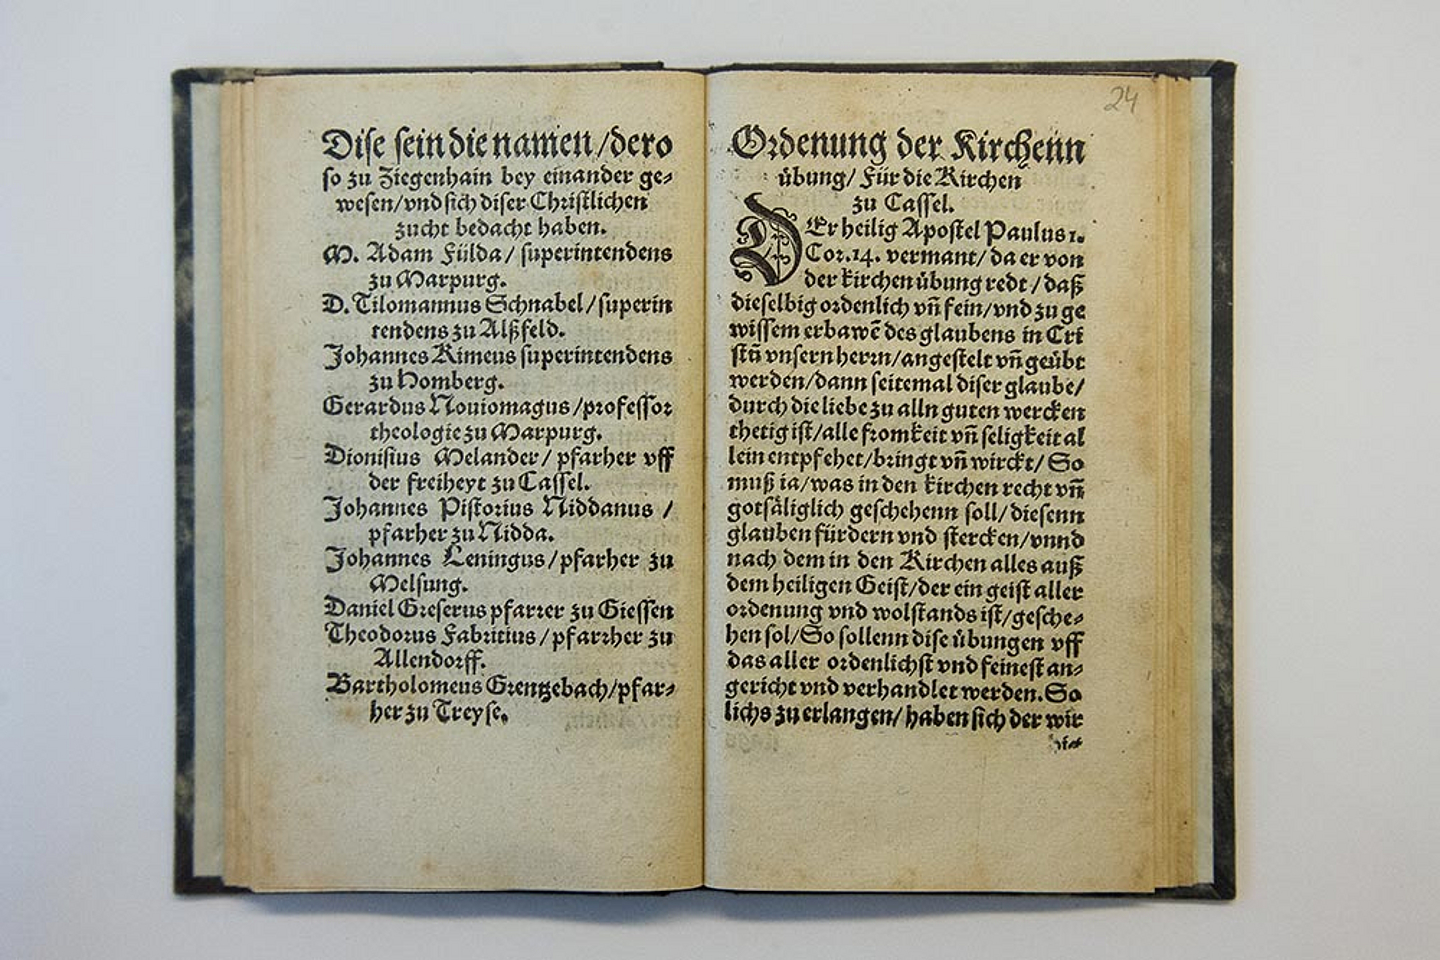 Dise sein die namen / dero
so zu Ziegenhain bey einander ge⸗
wesen / vnd sich diser Christlichen
zucht bedacht haben.
M. Adam Fůlda / superintendens
zu Marpurg.
D. Tilomannus Schnabel / superin
tendens zu Alßfeld.
Johannes Kimeus superintendens
zu Homberg.
Gerardus Nouiomagus / professor
theologie zu Marpurg.
Dionisius Melander / pfarher vff
der freiheyt zu Cassel.
Johannes Pistorius Niddanus /
pfarher zu Nidda.
Johannes Leningus / pfarher zu
Melsung.
Daniel Greserus pfarrer zu Giessen
Theodorus Fabritius / pfarrher zu
Allendorff.
Bartholomeus Grentzebach / pfar⸗
her zu Treyse.
24
Ordenung der Kirchenn
übung / Für die Kirchen
zu Cassel.
DEr heilig Apostel Paulus 1.
Cor. 14. vermant / da er von
der kirchen übung redt / daß
dieselbig ordenlich vñ fein / vnd zu ge
wissem erbawẽ des glaubens in Cri
stũ vnsern herrn / angestelt vñ geübt
werden / dann seitemal diser glaube /
durch die liebe zu alln guten wercken
thetig ist / alle fromkeit vñ seligkeit al
lein entpfehet / bringt vñ wirckt / So
muß ia / was in den kirchen recht vñ
gotsäliglich geschehenn soll / diesenn
glauben fürdern vnd stercken / vnnd
nach dem in den Kirchen alles auß
dem heiligen Geist / der ein geist aller
ordenung vnd wolstands ist / gesche⸗
hen sol / So sollenn dise übungen vff
das aller ordenlichst vnd feinest an⸗
gericht vnd verhandlet werden. So
lichs zu erlangen / haben sich der wir